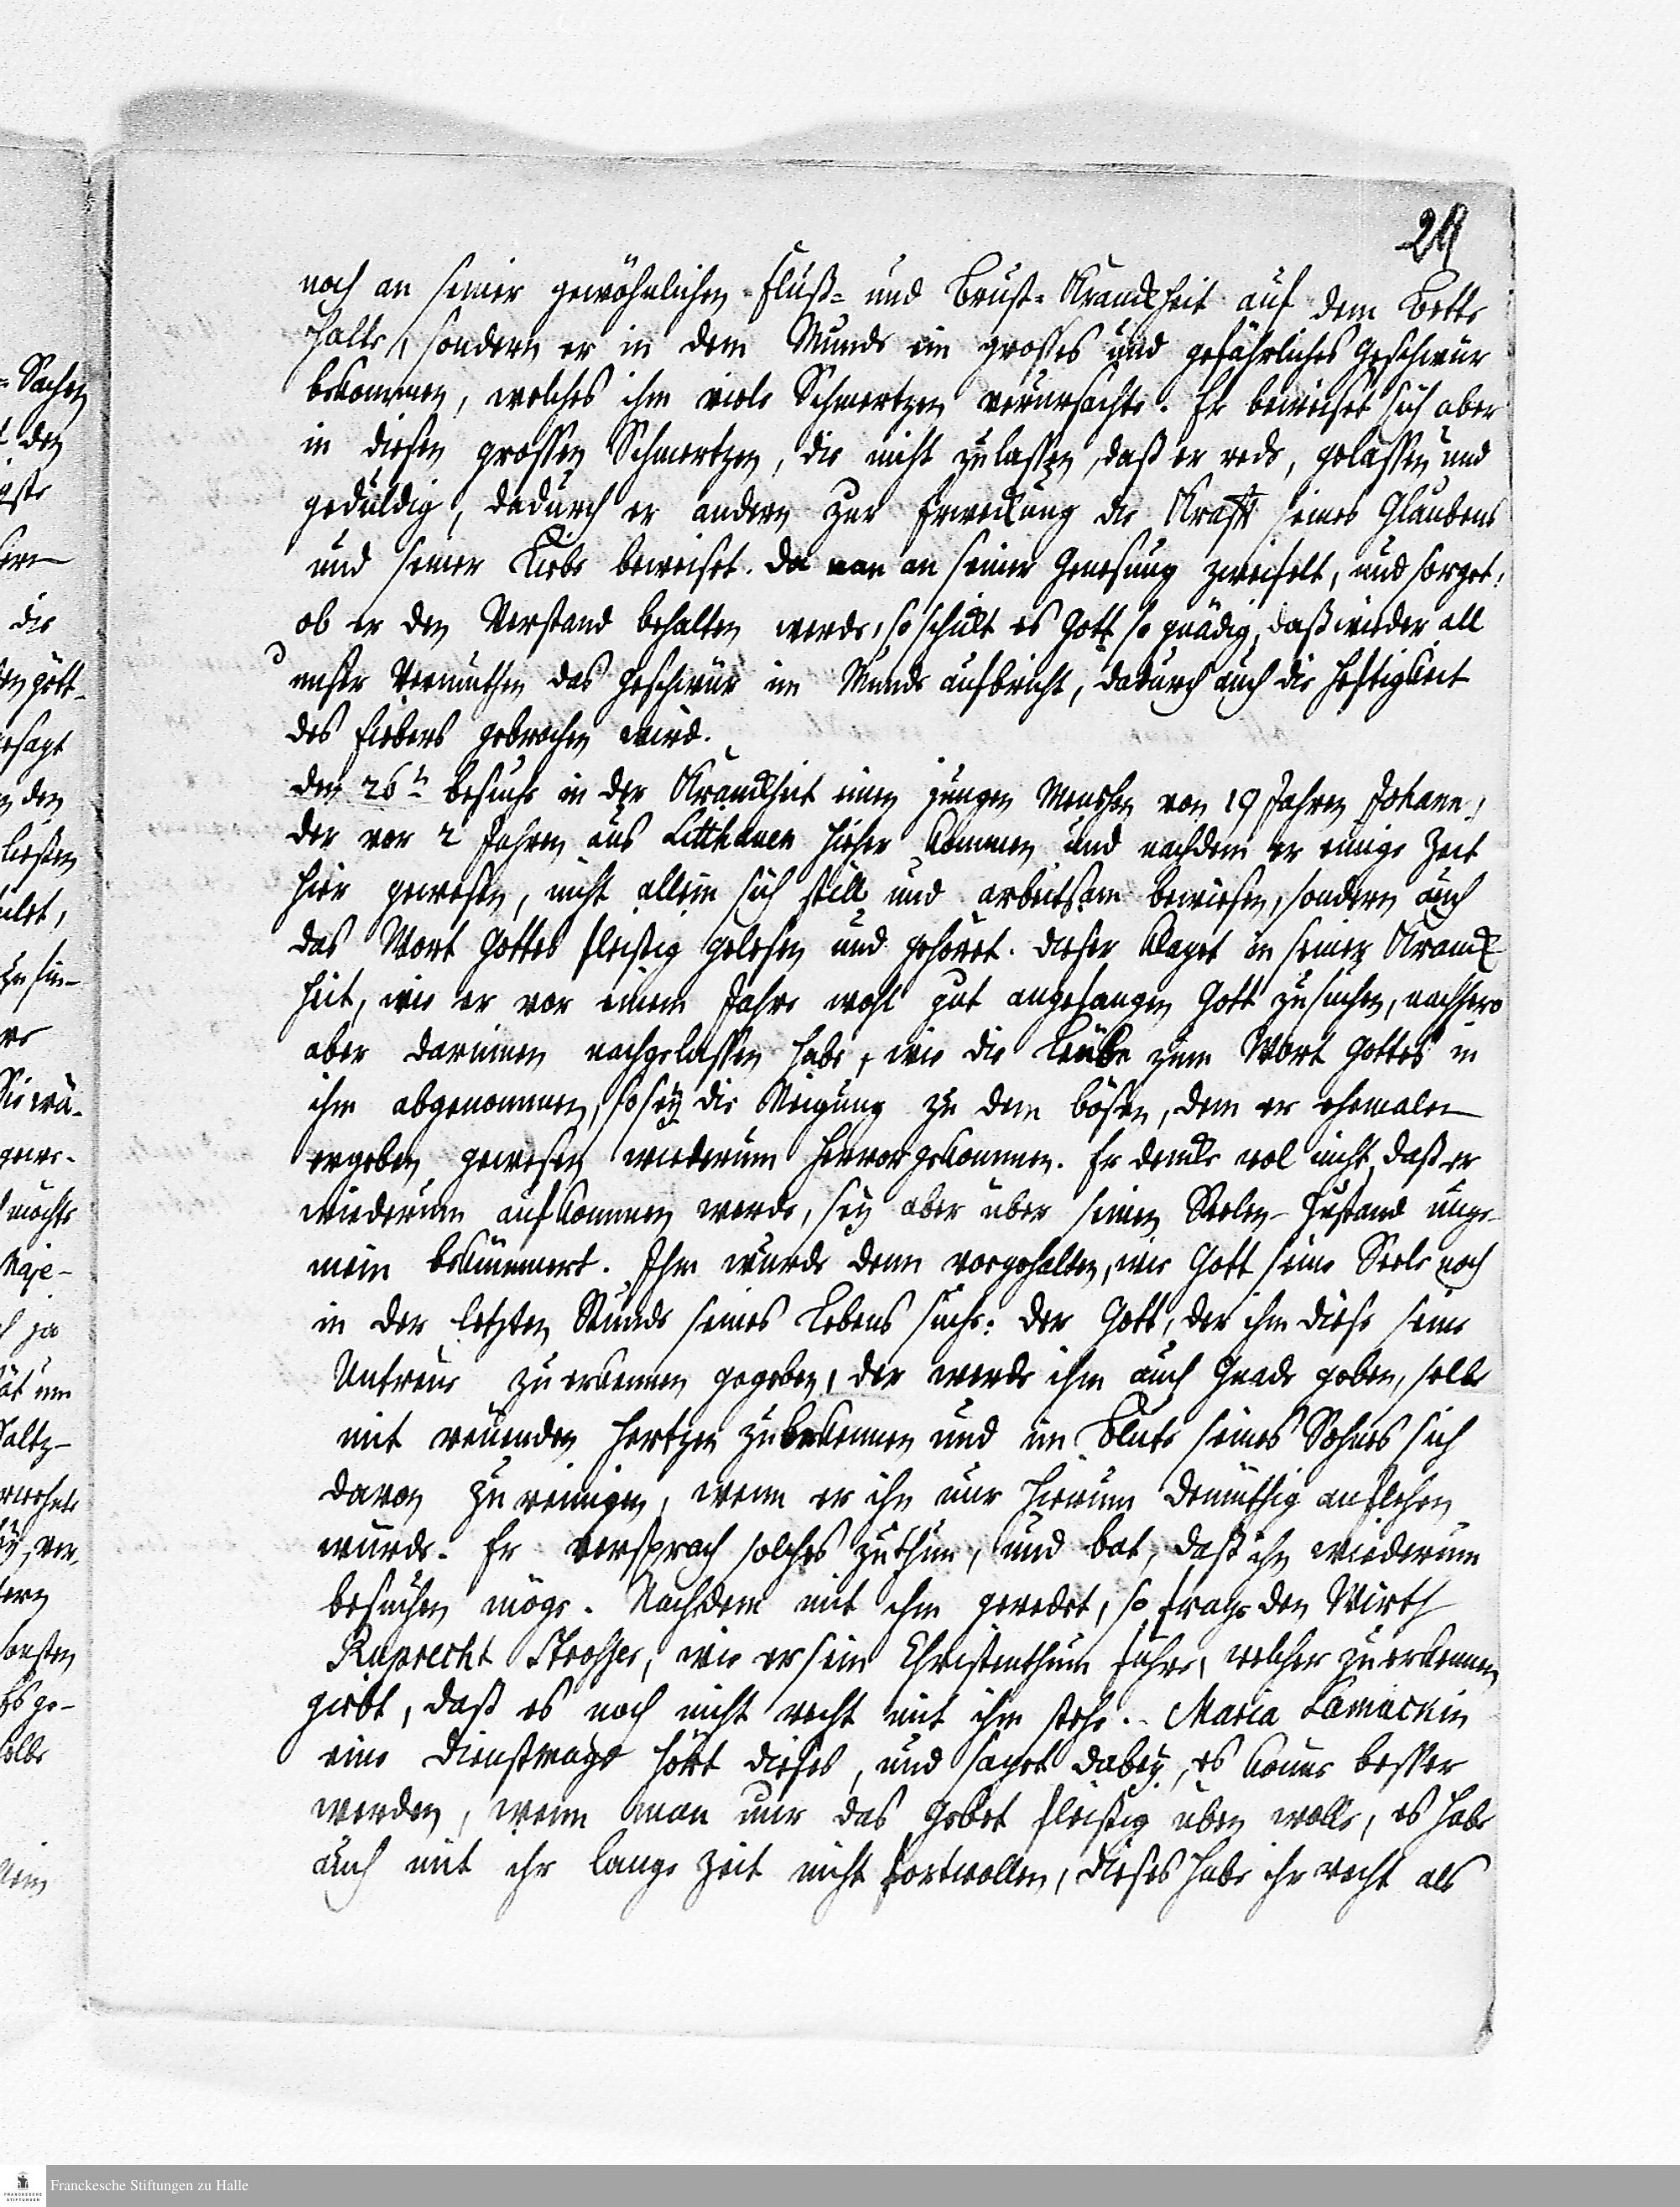 29
noch an seiner gewöhnlichen Fluß- und Brust-Kranckheit auf dem Bette
halte, sondern er in dem Munde ein grosses und gefährliches Geschwür
bekommen, welches ihm viele Schmertzen verursachte. Er beweiset sich aber
in diesen grossen Schmertzen, die nicht zulassen, daß er rede, gelassen und
geduldig, dadurch er andern zur Erweckung die Kraft seines Glaubens
und seiner Liebe beweiset. Da man an seiner Genesung zweifelt, und sorget,
ob er den Verstand behalten werde, so schickt es Gott so gnädig, daß wieder all
unser Vermuthen das Geschwür im Munde aufbricht, dadurch auch die Heftigkeit
des Fiebers gebrochen wird.
Den 26t besuche in der Kranckheit einen jungen Menschen von 19 Jahren Johann,
der vor 2 Jahren aus Litthauen hieher kommen und nachdem er einige Zeit
hier gewesen, nicht allein sich still und arbeitsam bewiesen, sondern auch
das Wort Gottes fleißig gelesen und gehöret. Dieser klaget in seiner Kranck-
heit, wie er vor einem Jahre wohl gut angefangen Gott zu suchen, nachhero
aber darinnen nachgelassen habe, wie die Liebe zum Wort Gottes in
ihm abgenommen, so sey die Neigung zu dem bösen, dem er ehemalen
ergeben gewesen wiederum hervorgekommen. Er dencke wol nicht, daß er
wiederum aufkommen werde, sey aber über seinen Seelen-Zustand unge-
mein bekümmert. Ihm wurde denn vorgehalten, wie Gott seine Seele noch
in der letzten Stunde seines Lebens suche: der Gott, der ihm diese seine
Untreue zu erkennen gegeben, der werde ihm auch Gnade geben, selbe
mit reuenden Hertzen zu bekennen und im Blute seines Sohnes sich
davon zu reinigen, wenn er ihn nur hierum demüthig anflehen
würde. Er versprach solches zu thun, und bat, daß ihn wiederum
besuchen möge. Nachdem mit ihm geredet, so frage den Wirth
Ruprecht Strosser, wie er sein Christenthum führe, welcher zu erkennen
giebt, daß es noch nicht recht mit ihm stehe. Maria Lamackin
eine Dienstmagd hört dieses, und saget dabey, es könne besser
werden, wenn man nur das Gebet fleißig üben wolle, es habe
auch mit ihr lange Zeit nicht fortwollen, dieses habe ihr recht als
Franckesche Stiftungen zu Halle